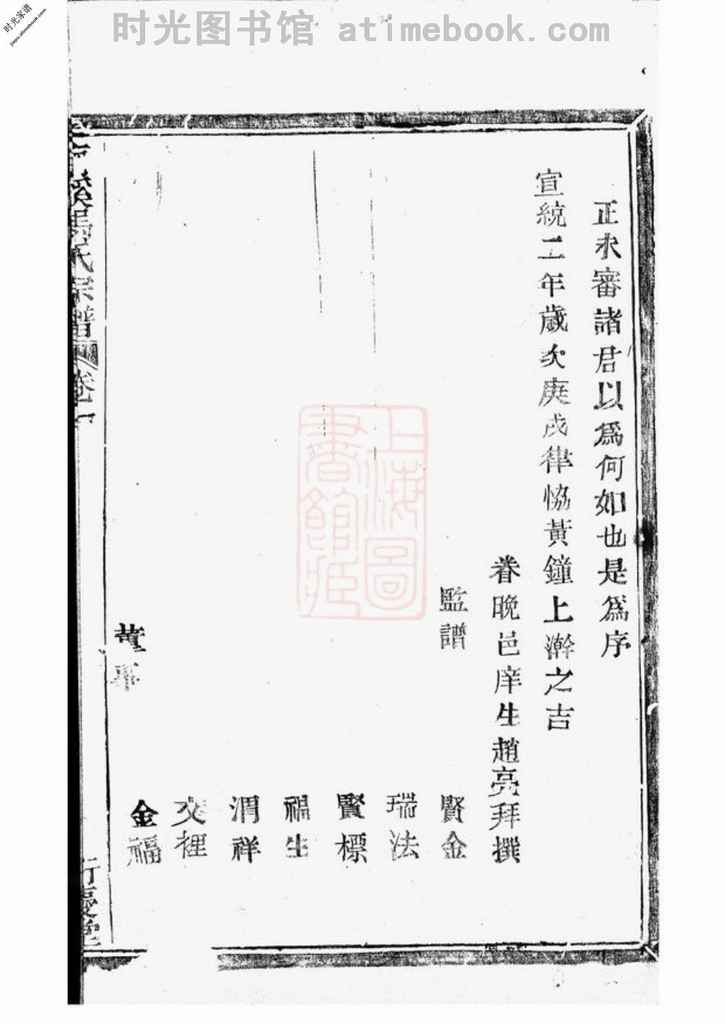 时光图书馆 atimebook.com
时光家谱
正未審諸君以爲何如也是爲序
宣統二年歲次庚戌律恊黃鐘上澣之吉
眷晚邑庠生趙亮拜撰
監譜
賢金
瑞法
賢標
福生
渭祥
文裡
董事
金福
溪馮氏宗譜
卷一
上海圖書館藏